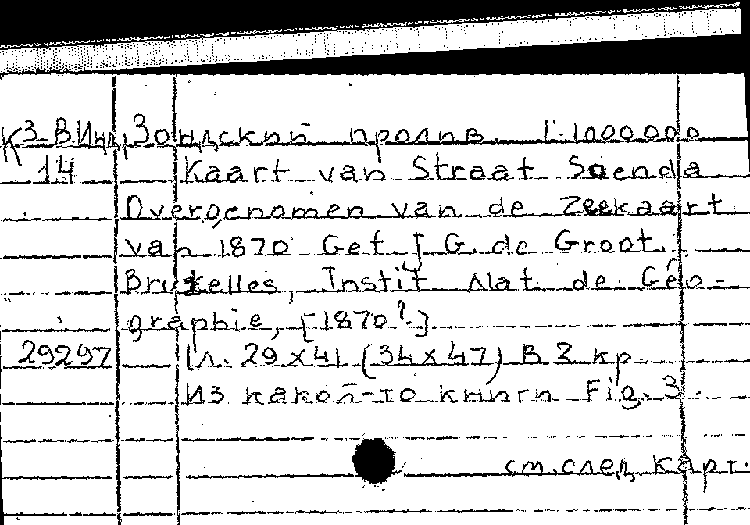 К3-В Инд, Зондский пролив. 1:1000000
14 Kaart van Straat Soenda
Overgenomen van de Zeekaart
van 1870 Get J G. de Groot.
Bruxelles, Instit Nat de Géo-
graphie, [1870?]
29297 1л. 29x41 (34x47) В 2 кр
Из какой-то книги Fig. 3.
см. след карт.